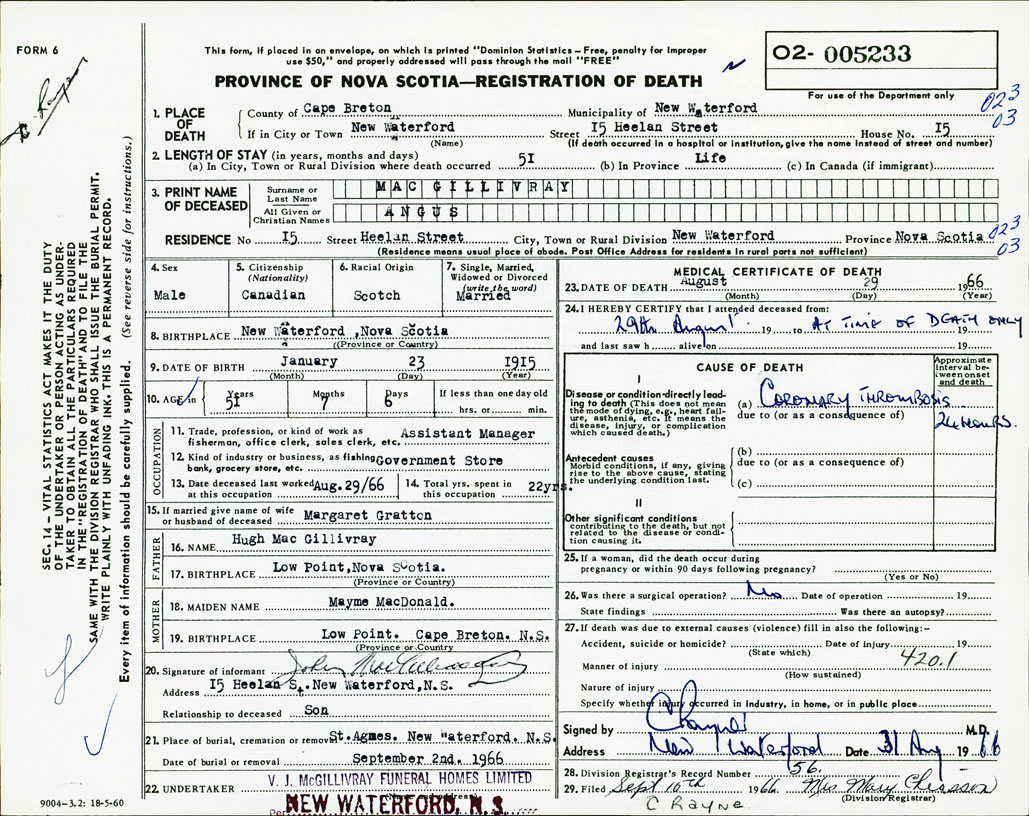 FORM 6
This form, if placed in an envelope, on which is printed "Dominion Statistics – Free, penalty for improper
use $50," and properly addressed will pass through the mail "FREE"
PROVINCE OF NOVA SCOTIA—REGISTRATION OF DEATH
O2- 005233
For use of the Department only
023
03
1. PLACE OF DEATH
County of Cape Breton Municipality of New Waterford
If in City or Town New Waterford Street I5 Heelan Street House No. I5
(Name) (If death occurred in a hospital or institution, give the name instead of street and number)
2. LENGTH OF STAY (in years, months and days)
(a) In City, Town or Rural Division where death occurred 5I (b) In Province Life (c) In Canada (if immigrant)
3. PRINT NAME OF DECEASED
Surname or Last Name MAC GILLIVRAY
All Given or Christian Names ANGUS
023
03
RESIDENCE No I5 Street Heelan Street City, Town or Rural Division New Waterford Province Nova Scotia
(Residence means usual place of abode. Post Office Address for residents in rural parts not sufficient)
4. Sex
Male
5. Citizenship
(Nationality)
Canadian
6. Racial Origin
Scotch
7. Single, Married,
Widowed or Divorced
(write the word)
Married
8. BIRTHPLACE New Waterford ,Nova Scotia
((Province or Country)
9. DATE OF BIRTH January 23 I915
(Month) (Day) (Year)
10. AGE in Years 51 Months 7 Days 6 If less than one day old
hrs. or min.
OCCUPATION
11. Trade, profession, or kind of work as
fisherman, office clerk, sales clerk, etc. Assistant Manager
12. Kind of industry or business, as fishing
bank, grocery store, etc. Government Store
13. Date deceased last worked
at this occupation Aug.29/66
14. Total yrs. spent in
this occupation 22yrs.
15. If married give name of wife
or husband of deceased Margaret Gratton
FATHER
16. NAME Hugh Mac Gillivray
17. BIRTHPLACE Low Point,Nova Scotia.
(Province or Country)
MOTHER
18. MAIDEN NAME Mayme MacDonald.
19. BIRTHPLACE Low Point. Cape Breton. N.S.
(Province or Country)
20. Signature of informant John
Address I5 Heelan St.New Waterford,N.S.
Relationship to deceased Son
21. Place of burial, cremation or removal St.Agnes. New Waterford. N.S.
Date of burial or removal September 2nd. I966
22. UNDERTAKER V. J. McGILLIVRAY FUNERAL HOMES LIMITED
Per NEW WATERFORD, N. S.
9004-3.2: 18-5-60
MEDICAL CERTIFICATE OF DEATH
23. DATE OF DEATH August 29 1966
(Month) (Day) (Year)
24. I HEREBY CERTIFY that I attended deceased from:
29th August 19 to AT TIME OF DEATH ONLY
and last saw h alive on 19
CAUSE OF DEATH
Approximate
interval be-
tween onset
and death
I
Disease or condition directly lead-
ing to death (This does not mean
the mode of dying, e.g., heart fail-
ure, asthenia, etc. It means the
disease, injury, or complication
which caused death.)
(a) CORONARY THROMBOSIS
due to (or as a consequence of)
24 HOURS.
Antecedent causes
Morbid conditions, if any, giving
rise to the above cause, stating
the underlying condition last.
(b)
due to (or as a consequence of)
(c)
II
Other significant conditions
contributing to the death, but not
related to the disease or condi-
tion causing it.
25. If a woman, did the death occur during
pregnancy or within 90 days following pregnancy?
(Yes or No)
26. Was there a surgical operation? No Date of operation 19
State findings Was there an autopsy?
27. If death was due to external causes (violence) fill in also the following:–
Accident, suicide or homicide? Date of injury 19
(State which)
420.1
Manner of injury
(How sustained)
Nature of injury
Specify whether injury occurred in industry, in home, or in public place
Signed by C Rayne M.D.
Address New Waterford Date 31 Aug 1966
28. Division Registrar's Record Number 56.
29. Filed Sept 10th 1966 Mrs Mary Chiasson
(Division Registrar)
C Rayne
C Rayne
SEC. 14 – VITAL STATISTICS ACT MAKES IT THE DUTY
OF THE UNDERTAKER OR PERSON ACTING AS UNDER-
TAKER TO OBTAIN ALL THE PARTICULARS REQUIRED
IN THE "REGISTRATION OF DEATH" AND TO FILE THE
SAME WITH THE DIVISION REGISTRAR WHO SHALL ISSUE THE BURIAL PERMIT.
WRITE PLAINLY WITH UNFADING INK. THIS IS A PERMANENT RECORD.
Every item of information should be carefully supplied. (See reverse side for instructions.)